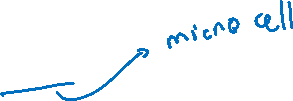 micro cell